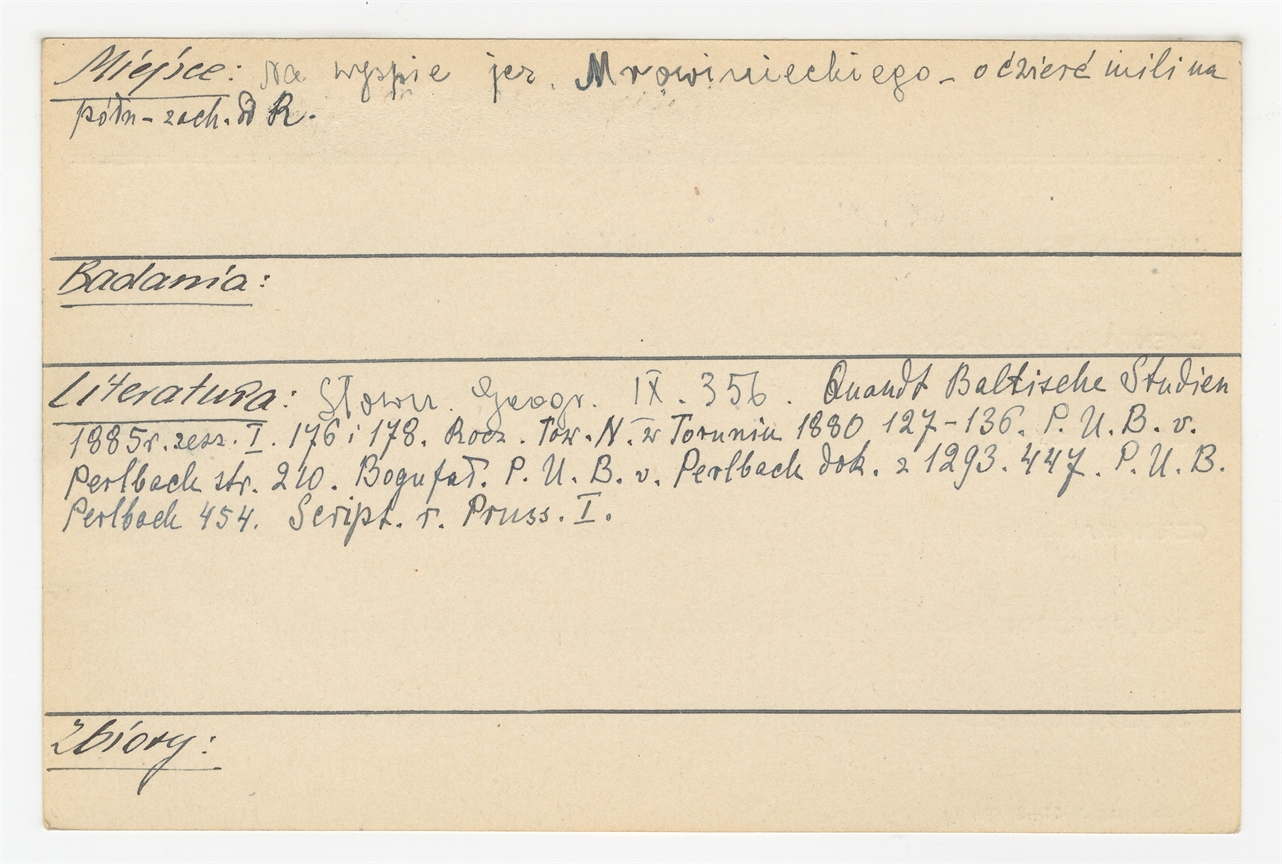 Miejsce: Na wyspie jez. Mrowinieckiego - o ćwierć mili na
półn-zach. od R.
Badania:
Literatura: Słown. Geogr. IX. 356. Quandt Baltische Studien
1885r. zesz. I. 176 i 178. Rocz. Tow. N. w Toruniu 1880 127-136. P. U. B. v.
Perlbach str. 210. Bogufał. P. U. B. v. Perlbach dok. z 1293. 447. P. U. B.
Perlbach 454. Script. r. Pruss. I.
Zbiory: